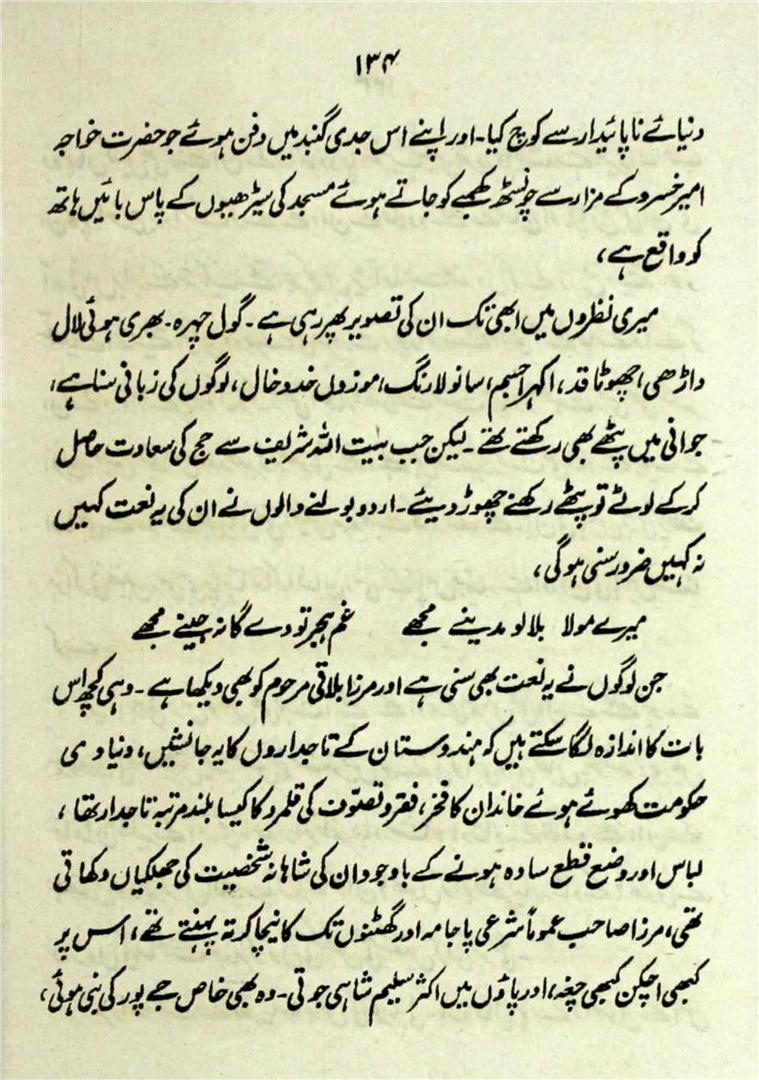 ۱۳۴
دنیائے ناپائیدار سے کوچ کیا۔ اور اپنے اس جدی گنبد میں دفن ہوئے جو حضرت خواجہ
امیر خسرو کے مزار سے چونسٹھ کھمبے کو جاتے ہوئے مسجد کی سیڑھیوں کے پاس بائیں ہاتھ
کو واقع ہے،
میری نظروں میں ابھی تک ان کی تصویر پھر رہی ہے۔ گول چہرہ۔ بھری ہوئی لال
داڑھی، چھوٹا قد، اکہرا جسم، سانولا رنگ، موزوں خدوخال، لوگوں کی زبانی سنا ہے،
جوانی میں پٹھے بھی رکھتے تھے۔ لیکن جب بیت اللہ شریف سے حج کی سعادت حاصل
کر کے لوٹے تو پٹھے رکھنے چھوڑ دیئے۔ اردو بولنے والوں نے ان کی یہ نعت کہیں
نہ کہیں ضرور سنی ہوگی،
میرے مولا بلا لو مدینے مجھے غم ہجر تو دے گا نہ جینے مجھے
جن لوگوں نے یہ نعت بھی سنی ہے اور مرزا بلاقی مرحوم کو بھی دیکھا ہے۔ وہی کچھ اس
بات کا اندازہ لگا سکتے ہیں کہ ہندوستان کے تاجداروں کا یہ جانشیں، دنیاوی
حکومت کھوئے ہوئے خاندان کا فخر، فقر و تصوّف کی قلمرو کا کیسا بلند مرتبہ تاجدار تھا،
لباس اور وضع قطع سادہ ہونے کے باوجود ان کی شاہانہ شخصیت کی جھلکیاں دکھاتی
تھی، مرزا صاحب عموماً شرعی پاجامہ اور گھٹنوں تک کا نیچا کرتہ پہنتے تھے، اس پر
کبھی اچکن کبھی چغہ، اور پاؤں میں اکثر سلیم شاہی جوتی۔ وہ بھی خاص جے پور کی بنی ہوئی،